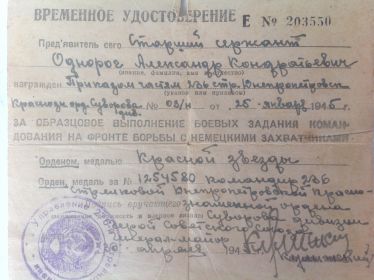 ВРЕМЕННОЕ УДОСТОВЕРЕНИЕ Е № 203550
Пред'явитель сего Старший сержант
Однорог Александр Кондратьевич
(звание, фамилия, имя и отчество)
награжден Приказом частям 236 стр. Днепропетровск.
(указом или приказом)
Краснозн. орд. Суворова див. № 03/н от "25" января 1945 г.
ЗА ОБРАЗЦОВОЕ ВЫПОЛНЕНИЕ БОЕВЫХ ЗАДАНИЙ КОМАН-
ДОВАНИЯ НА ФРОНТЕ БОРЬБЫ С НЕМЕЦКИМИ ЗАХВАТЧИКАМИ
Орденом, медалью Красной звезды
Орден, медаль за № 1254580 Командир 236
Стрелковой Днепропетровской Красно-
знаменной ордена
Суворова дивизии
Герой Советского Союза
генерал-майор
апреля 1945